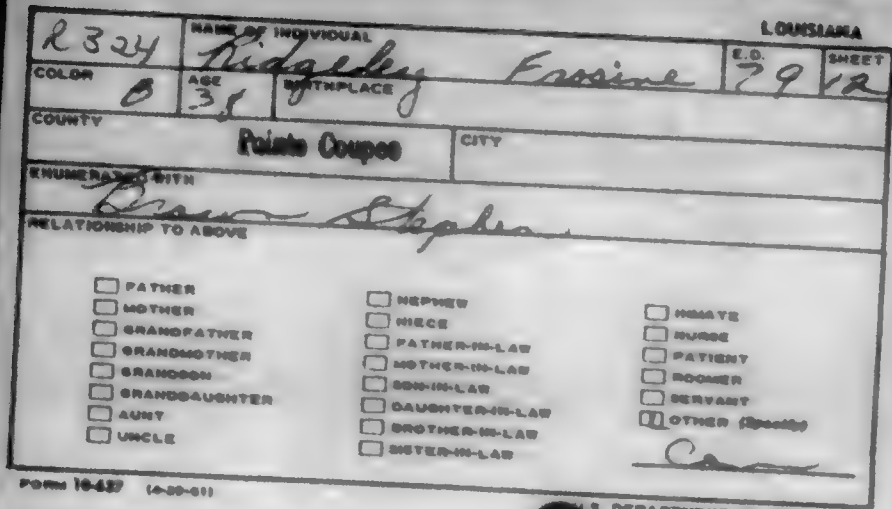 LOUISIANA
R 324 NAME OF INDIVIDUAL Ridgeley Frosine E.D. 79 SHEET 12
COLOR B AGE 38 BIRTHPLACE
COUNTY Pointe Coupee CITY
ENUMERATED WITH
Brown Stephen
RELATIONSHIP TO ABOVE
FATHER
MOTHER
GRANDFATHER
GRANDMOTHER
GRANDSON
GRANDDAUGHTER
AUNT
UNCLE
NEPHEW
NIECE
FATHER-IN-LAW
MOTHER-IN-LAW
SON-IN-LAW
DAUGHTER-IN-LAW
BROTHER-IN-LAW
SISTER-IN-LAW
INMATE
NURSE
PATIENT
ROOMER
SERVANT
OTHER (Specify)
FORM 10-637 (4-20-61)
U.S. DEPARTMENT